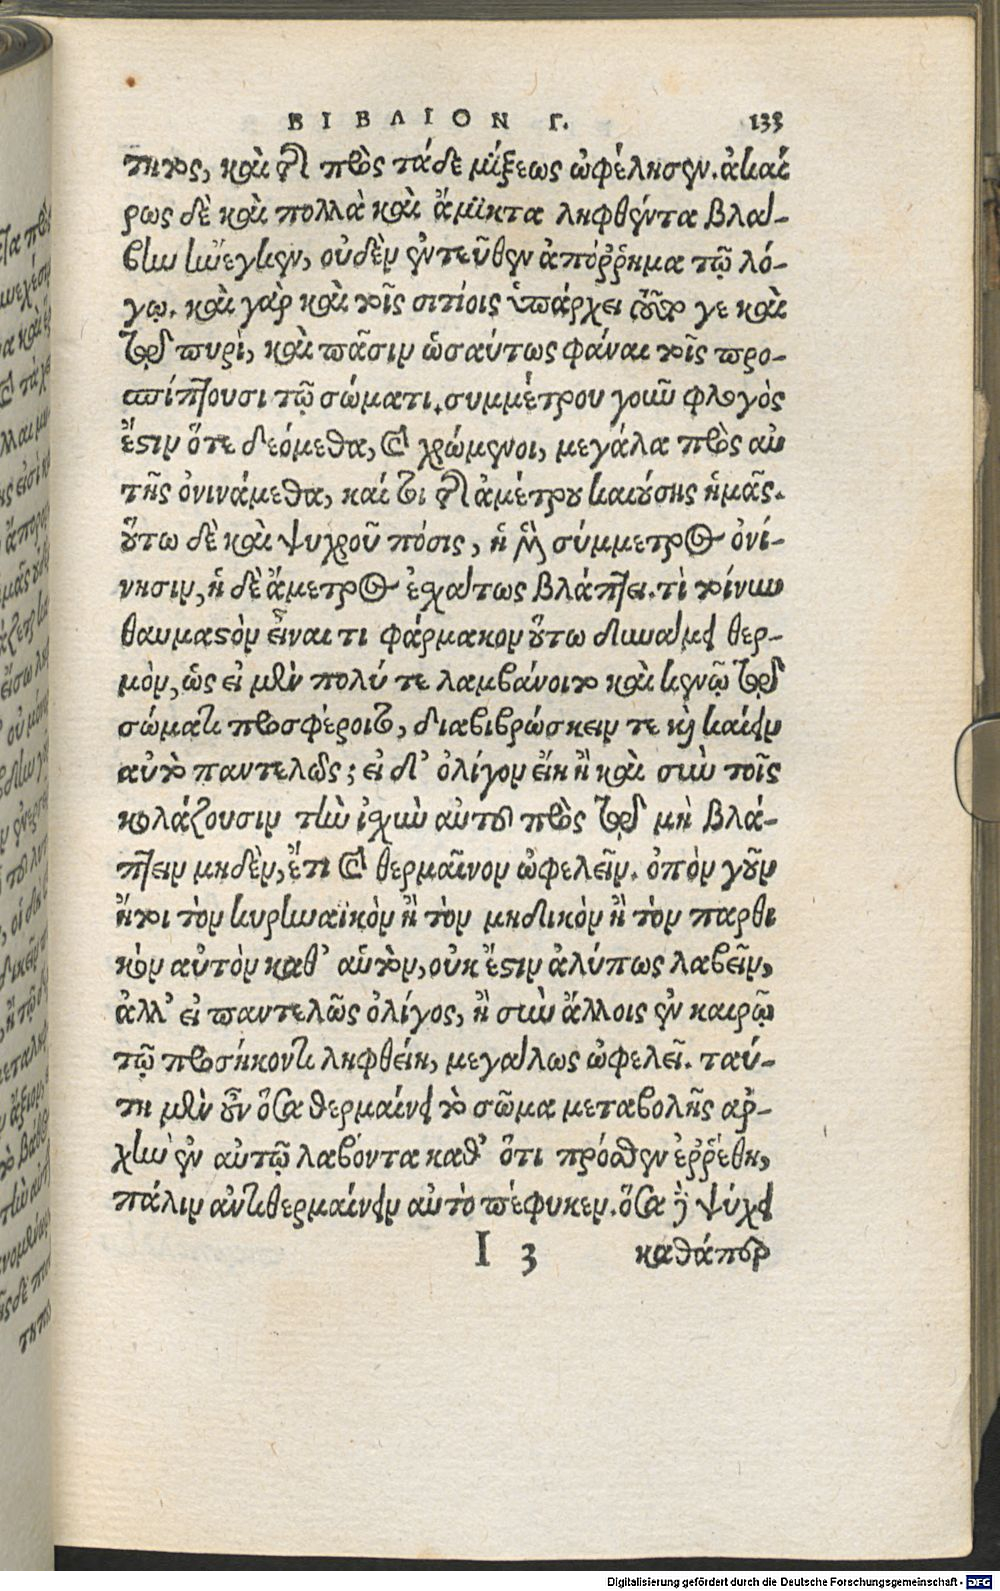 ΒΙΒΛΙΟΝ Γ. 133
τητος, καὶ διὰ πρὸς τάδε μίξεως ὠφέλησεν. ἀκαί
ρως δὲ καὶ πολλὰ καὶ ἄμικτα ληφθέντα βλά-
βην ἤνεγκεν, οὐδὲν ἐντεῦθεν ἀπόῤῥημα τῷ λό-
γῳ. καὶ γὰρ καὶ τοῖς σιτίοις ὑπάρχει τοῦτό γε καὶ
τῷ πυρὶ, καὶ πᾶσιν ὡσαύτως φάναι τοῖς προ-
σπίπτουσι τῷ σώματι. συμμέτρου γοῦν φλογὸς
ἔστιν ὅτε δεόμεθα, καὶ χρώμενοι, μεγάλα πρὸς αὐ
τῆς ὀνινάμεθα, καί τοι διὰ ἀμέτρου καιούσης ἡμᾶς.
οὕτω δὲ καὶ ψυχροῦ πόσις, ἡ μὲν σύμμετρος ὀνί-
νησιν, ἡ δὲ ἄμετρος ἐσχάτως βλάπτει. τὶ τοίνυν
θαυμαστὸν εἶναι τι φάρμακον οὕτω δυνάμει θερ-
μὸν, ὡς εἰ μὲν πολύ τε λαμβάνοιτο καὶ κενῷ τῷ
σώματι προσφέροιτο, διαβιβρώσκειν τε καὶ καίειν
αὐτὸ παντελῶς; εἰ δ' ὀλίγον εἴη ἢ καὶ σὺν τοῖς
κολάζουσιν τὴν ἰσχὺν αὐτοῦ πρὸς τῷ μὴ βλά-
πτειν μηδὲν, ἔτι καὶ θερμαῖνον ὠφελεῖν. ὀπὸν γοῦν
ἤτοι τὸν κυρηναϊκὸν ἢ τὸν μηδικὸν ἢ τὸν παρθι
κὸν αὐτὸν καθ' αὑτὸν, οὐκ ἔστιν ἀλύπως λαβεῖν,
ἀλλ' εἰ παντελῶς ὀλίγος, ἢ σὺν ἄλλοις ἐν καιρῷ
τῷ προσήκοντι ληφθείη, μεγάλως ὠφελεῖ. ταύ-
τη μὲν οὖν ὅσα θερμαίνει τὸ σῶμα μεταβολῆς ἀρ-
χὴν ἐν αὐτῷ λαβόντα καθ' ὅτι πρόσθεν ἐῤῥέθη,
πάλιν ἀντιθερμαίνειν αὐτὸ πέφυκεν. ὅσα δὲ ψύχει
I 3 καθάπερ
Digitalisierung gefördert durch die Deutsche Forschungsgemeinschaft - DFG